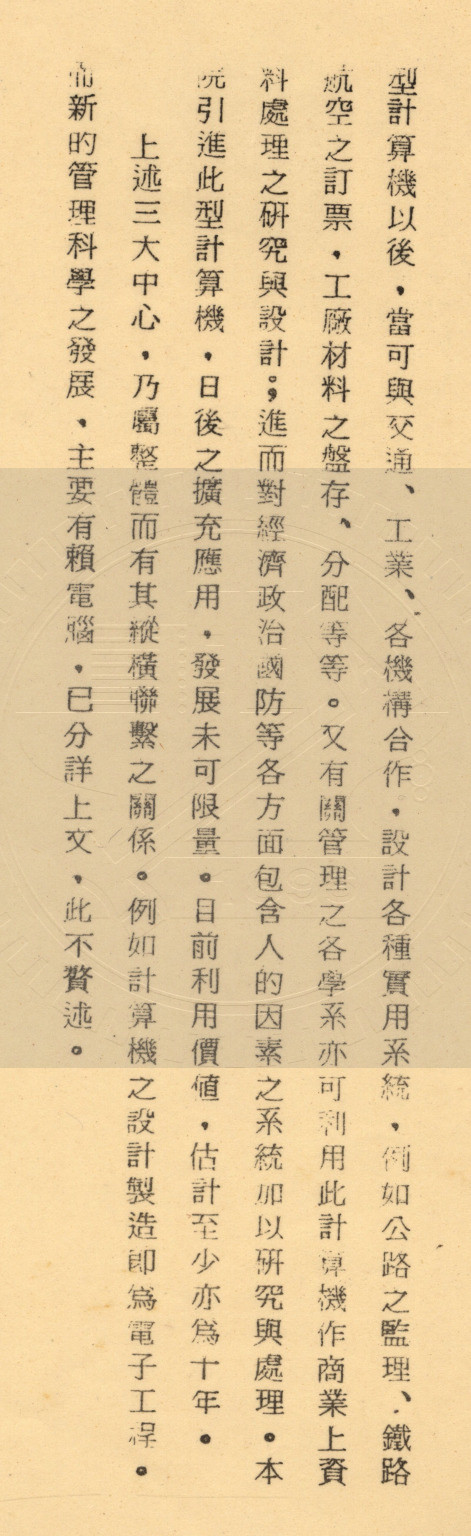 型計算機以後，當可與交通、工業、各機構合作，設計各種實用系統，例如公路之監理、鐵路
航空之訂票，工廠材料之盤存、分配等等。又有關管理之各學系亦可利用此計算機作商業上資
料處理之研究與設計。；進而對經濟政治國防等各方面包含人的因素之系統加以研究與處理。本
院引進此型計算機，日後之擴充應用，發展未可限量。目前利用價値，估計至少亦爲十年。
上述三大中心，乃屬整體而有其縱橫聯繫之關係。例如計算機之設計製造卽爲電子工程。
而新的管理科學之發展，主要有賴電腦，已分詳上文，此不贅述。